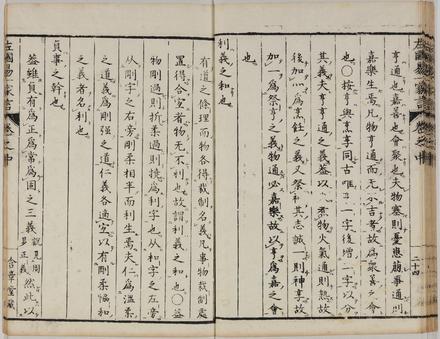 左國易一家言 卷之中 二十四
亨通也嘉善也會聚也夫物塞則憂患蔽事通則
嘉樂生焉凡物亨通而无不吉者故爲衆嘉之會
也○按亨與烹享同古唯亨一字後增一字以分
其義夫亨亨通之義蓋以煮物火氣通則熟故
後加灬爲烹飪之義又祭和其志誠則神享故
加一爲祭享之義物通必嘉樂故以亨爲嘉之會
也
利義之和也
有道之條理而物各得裁制名義凡事物裁制處
置得合宜者物无不利也故謂利義之和也○蓋
物剛過則折柔過則撓爲利字也从和字之左旁
从剛字之右旁剛柔相半而利生焉夫仁爲溫柔
之道義爲剛强之道仁義各適宜以有剛柔恊和
之義者名利也
貞事之幹也
蓋雖貞有爲正爲常爲固之三義說見周易正義然此以
左國易一家言 卷之中 含章堂藏